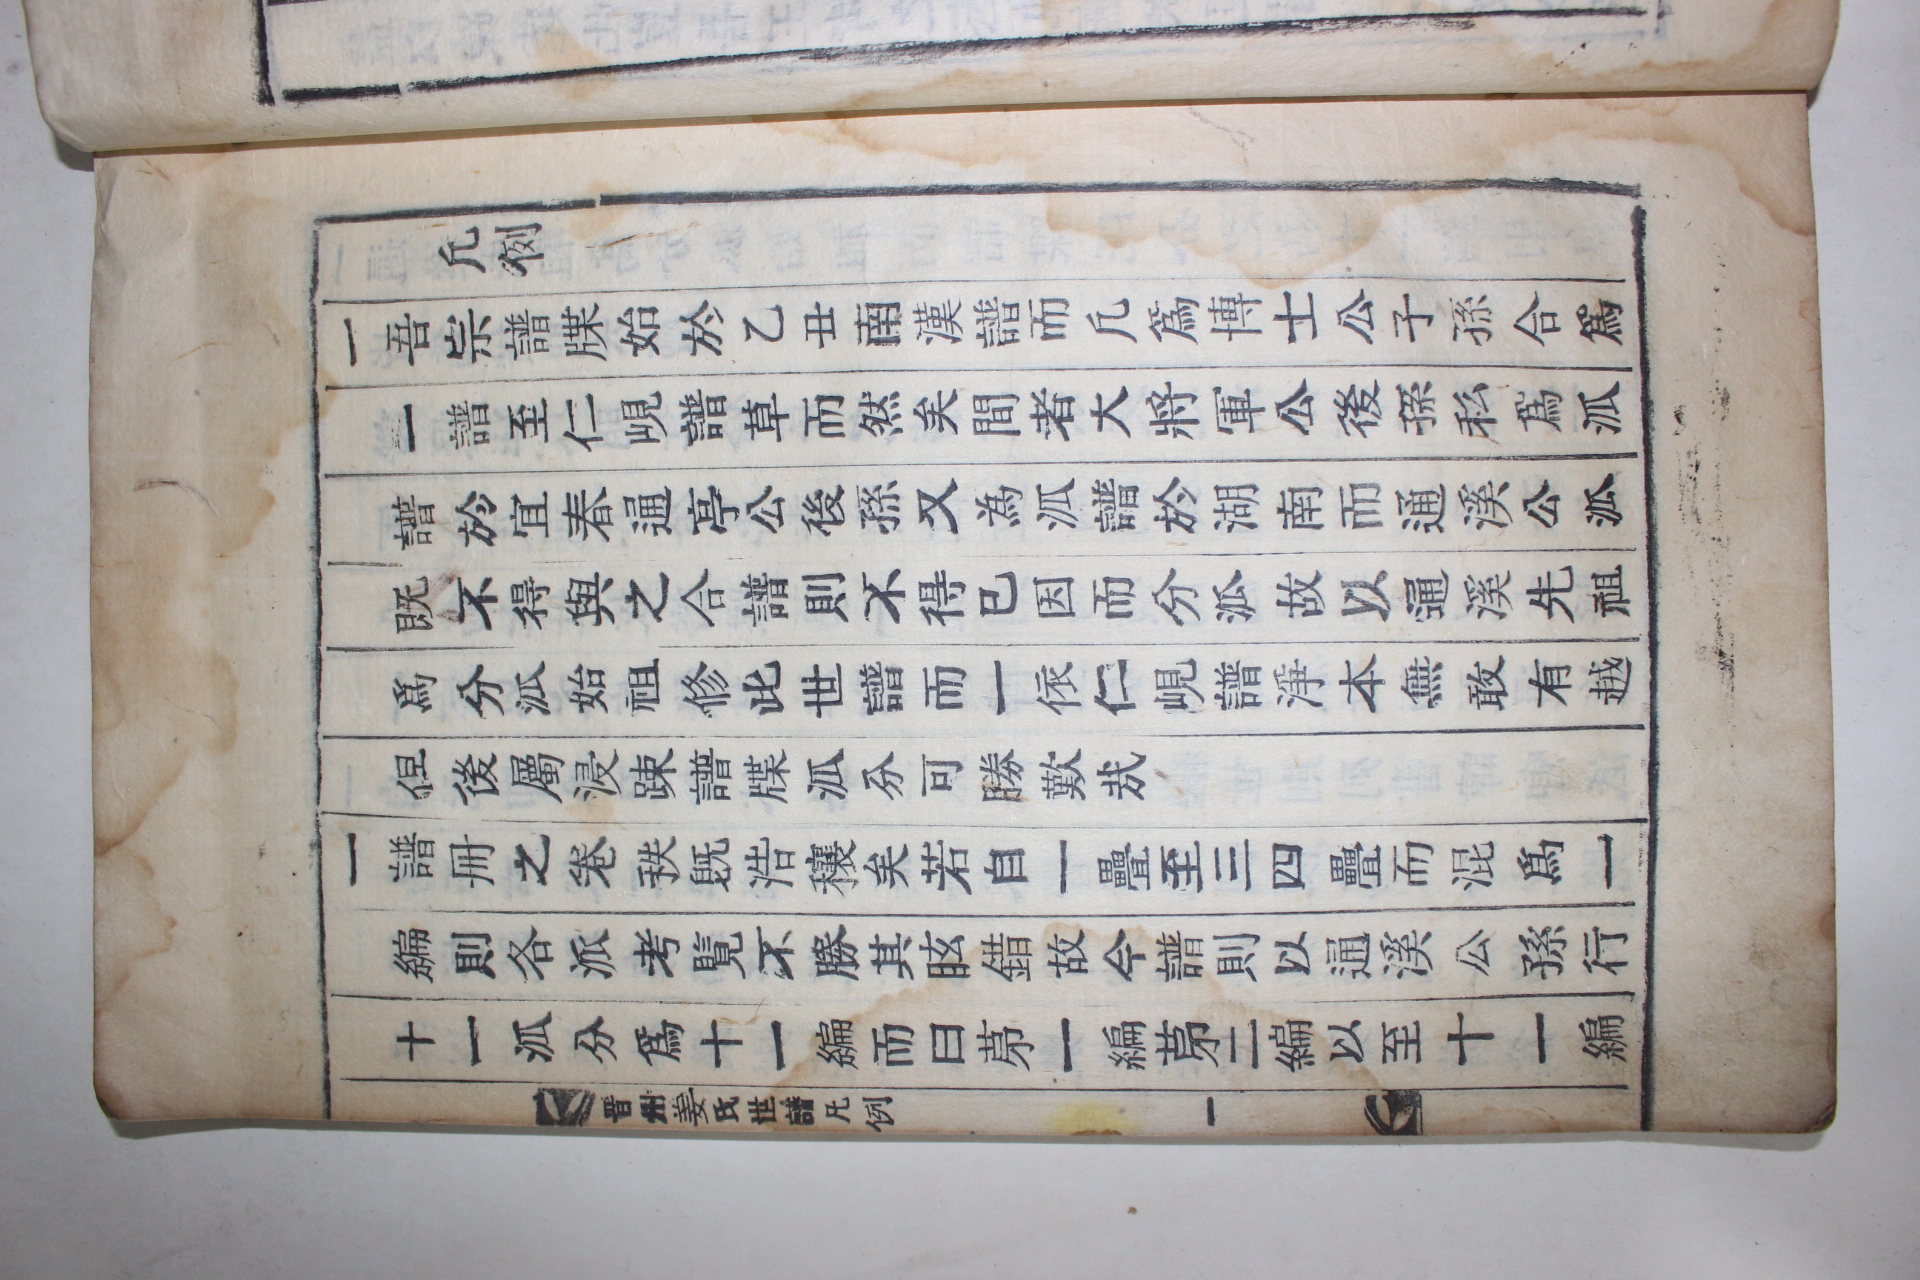 凡例
一吾宗譜牒始於乙丑南漢譜而凡爲博士公子孫合爲
一譜至仁峴譜草而然矣間者大將軍公後孫私爲派
譜於宜春通亭公後孫又為派譜於湖南而通溪公派
既不得與之合譜則不得已因而分派故以通溪先祖
爲分派始祖修此世譜而一依仁峴譜淨本無敢有越
但後屬浸踈譜牒派分可勝歎哉
一譜冊之卷秩既浩穰矣若自一疊至三四疊而混爲一
編則各派考覽不勝其眩錯故今譜則以通溪公孫行
十一派分爲十一編而曰苐一編苐二編以至十一編
晋州姜氏世譜凡例 一